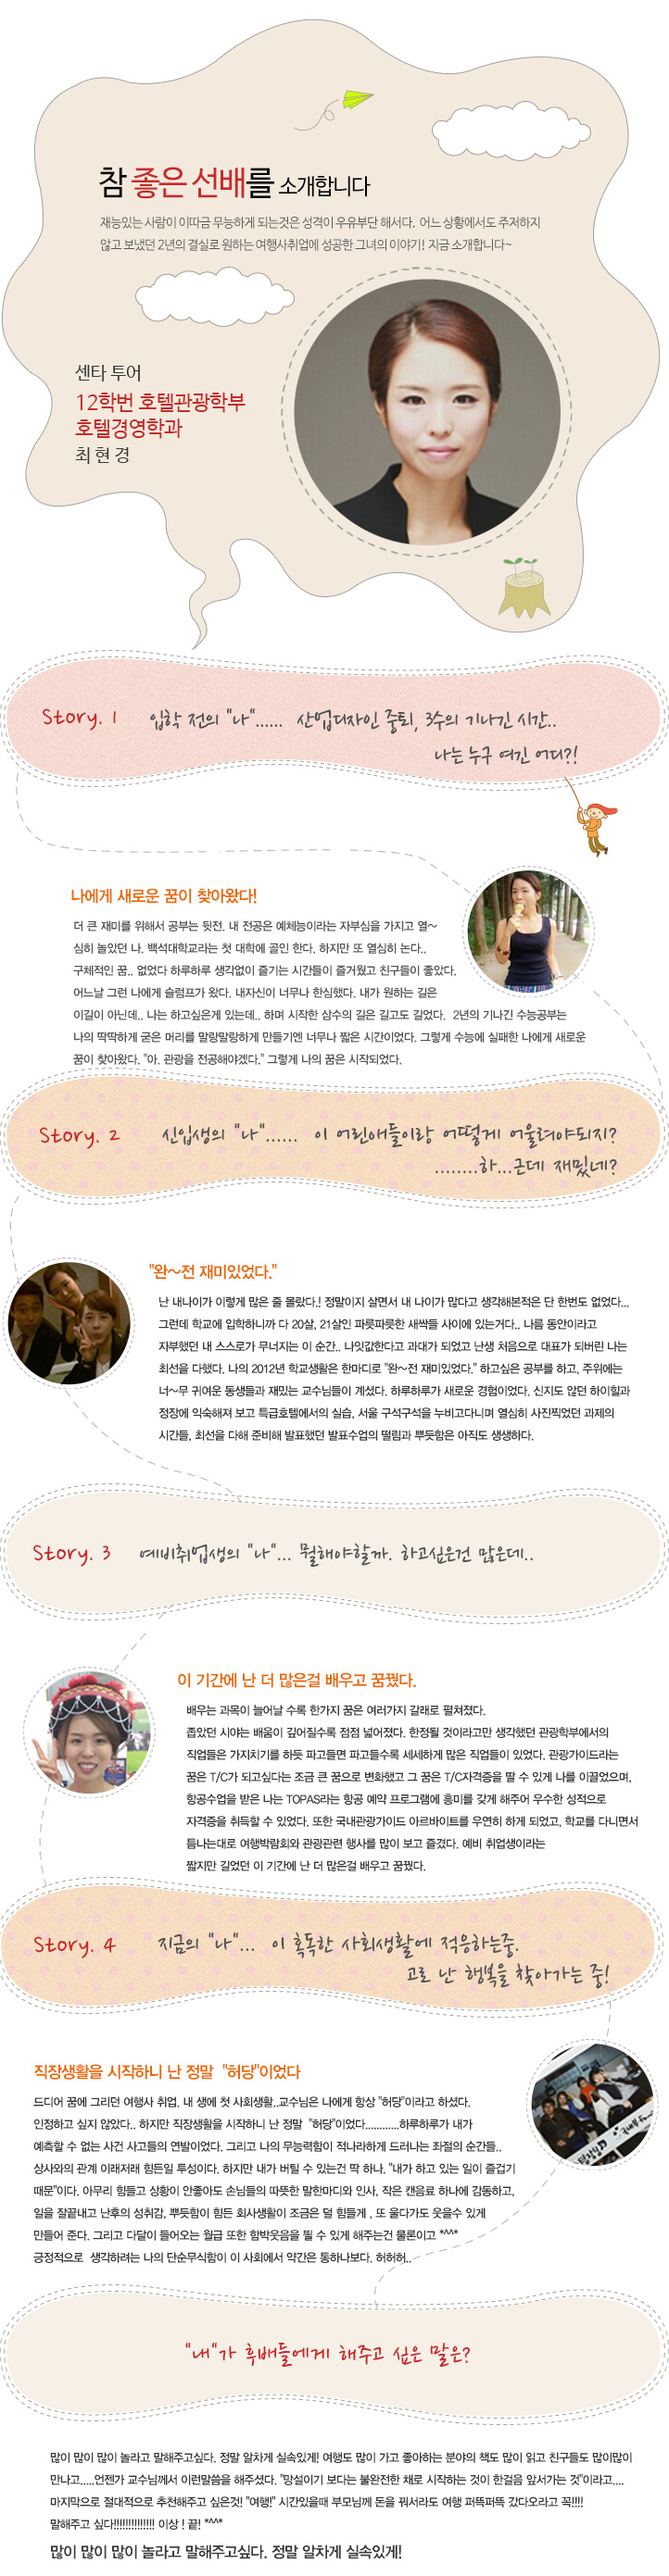 참 좋은 선배를 소개합니다
재능있는 사람이 이따금 무능하게 되는것은 성격이 우유부단 해서다. 어느 상황에서도 주저하지
않고 보냈던 2년의 결실로 원하는 여행사취업에 성공한 그녀의 이야기! 지금 소개합니다~
센타 투어
12학번 호텔관광학부
호텔경영학과
최 현 경
Story. 1 입학 전의 "나"...... 산업디자인 중퇴, 3수의 기나긴 시간..
나는 누구 여긴 어디?!
나에게 새로운 꿈이 찾아왔다!
더 큰 재미를 위해서 공부는 뒷전. 내 전공은 예체능이라는 자부심을 가지고 열~
심히 놀았던 나. 백석대학교라는 첫 대학에 골인 한다. 하지만 또 열심히 논다..
구체적인 꿈.. 없었다 하루하루 생각없이 즐기는 시간들이 즐거웠고 친구들이 좋았다.
어느날 그런 나에게 슬럼프가 왔다. 내자신이 너무나 한심했다. 내가 원하는 길은
이길이 아닌데.. 나는 하고싶은게 있는데.. 하며 시작한 삼수의 길은 길고도 길었다. 2년의 기나긴 수능공부는
나의 딱딱하게 굳은 머리를 말랑말랑하게 만들기엔 너무나 짧은 시간이었다. 그렇게 수능에 실패한 나에게 새로운
꿈이 찾아왔다. "아. 관광을 전공해야겠다." 그렇게 나의 꿈은 시작되었다.
Story. 2 신입생의 "나"...... 이 어린애들이랑 어떻게 어울려야되지?
........하...근데 재밌네?
"완~전 재미있었다."
난 내나이가 이렇게 많은 줄 몰랐다.! 정말이지 살면서 내 나이가 많다고 생각해본적은 단 한번도 없었다...
그런데 학교에 입학하니까 다 20살, 21살인 파릇파릇한 새싹들 사이에 있는거다.. 나름 동안이라고
자부했던 내 스스로가 무너지는 이 순간.. 나잇값한다고 과대가 되었고 난생 처음으로 대표가 되버린 나는
최선을 다했다. 나의 2012년 학교생활은 한마디로 "완~전 재미있었다." 하고싶은 공부를 하고, 주위에는
너~무 귀여운 동생들과 재밌는 교수님들이 계셨다. 하루하루가 새로운 경험이었다. 신지도 않던 하이힐과
정장에 익숙해져 보고 특급호텔에서의 실습, 서울 구석구석을 누비고다니며 열심히 사진찍었던 과제의
시간들, 최선을 다해 준비해 발표했던 발표수업의 떨림과 뿌듯함은 아직도 생생하다.
Story. 3 예비취업생의 "나"... 뭘해야할까. 하고싶은건 많은데..
이 기간에 난 더 많은걸 배우고 꿈꿨다.
배우는 과목이 늘어날 수록 한가지 꿈은 여러가지 갈래로 펼쳐졌다.
좁았던 시야는 배움이 깊어질수록 점점 넓어졌다. 한정될 것이라고만 생각했던 관광학부에서의
직업들은 가지치기를 하듯 파고들면 파고들수록 세세하게 많은 직업들이 있었다. 관광가이드라는
꿈은 T/C가 되고싶다는 조금 큰 꿈으로 변화했고 그 꿈은 T/C자격증을 딸 수 있게 나를 이끌었으며,
항공수업을 받은 나는 TOPAS라는 항공 예약 프로그램에 흥미를 갖게 해주어 우수한 성적으로
자격증을 취득할 수 있었다. 또한 국내관광가이드 아르바이트를 우연히 하게 되었고, 학교를 다니면서
틈나는대로 여행박람회와 관광관련 행사를 많이 보고 즐겼다. 예비 취업생이라는
짧지만 길었던 이 기간에 난 더 많은걸 배우고 꿈꿨다.
Story. 4 지금의 "나"... 이 혹독한 사회생활에 적응하는중.
고로 난 행복을 찾아가는 중!
직장생활을 시작하니 난 정말 "허당"이었다
드디어 꿈에 그리던 여행사 취업. 내 생에 첫 사회생활..교수님은 나에게 항상 "허당"이라고 하셨다.
인정하고 싶지 않았다.. 하지만 직장생활을 시작하니 난 정말 "허당"이었다............하루하루가 내가
예측할 수 없는 사건 사고들의 연발이었다. 그리고 나의 무능력함이 적나라하게 드러나는 좌절의 순간들..
상사와의 관계 이래저래 힘든일 투성이다. 하지만 내가 버틸 수 있는건 딱 하나. "내가 하고 있는 일이 즐겁기
때문"이다. 아무리 힘들고 상황이 안좋아도 손님들의 따뜻한 말한마디와 인사, 작은 캔음료 하나에 감동하고,
일을 잘끝내고 난후의 성취감, 뿌듯함이 힘든 회사생활이 조금은 덜 힘들게 , 또 울다가도 웃을수 있게
만들어 준다. 그리고 다달이 들어오는 월급 또한 함박웃음을 띌 수 있게 해주는건 물론이고 *^^*
긍정적으로 생각하려는 나의 단순무식함이 이 사회에서 약간은 통하나보다. 허허허..
"내"가 후배들에게 해주고 싶은 말은?
많이 많이 많이 놀라고 말해주고싶다. 정말 알차게 실속있게! 여행도 많이 가고 좋아하는 분야의 책도 많이 읽고 친구들도 많이많이
만나고.....언젠가 교수님께서 이런말씀을 해주셨다. "망설이기 보다는 불완전한 채로 시작하는 것이 한걸음 앞서가는 것"이라고....
마지막으로 절대적으로 추천해주고 싶은것! "여행!" 시간있을때 부모님께 돈을 꿔서라도 여행 퍼뜩퍼뜩 갔다오라고 꼭!!!!
말해주고 싶다!!!!!!!!!!!!!! 이상 ! 끝! *^^*
많이 많이 많이 놀라고 말해주고싶다. 정말 알차게 실속있게!